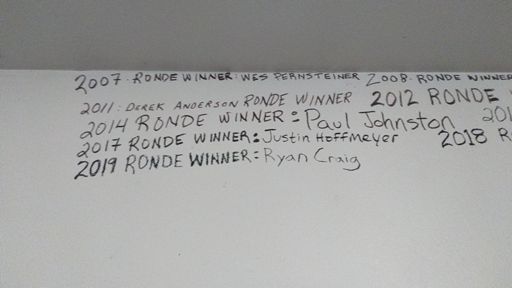 2007 · RONDE WINNER: WES PERNSTEINER 2008 · RONDE WINNER
2011: DEREK ANDERSON RONDE WINNER 2012 RONDE
2014 RONDE WINNER: Paul Johnston 201
2017 RONDE WINNER: Justin Hoffmeyer 2018 R
2019 RONDE WINNER: Ryan Craig